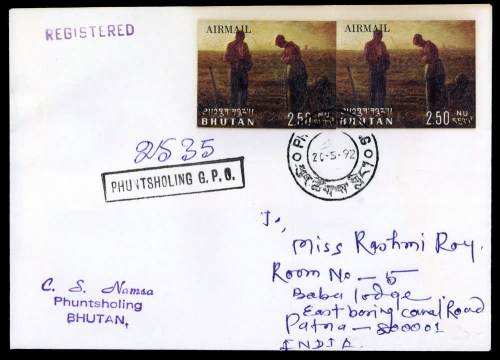 REGISTERED
AIRMAIL
AIRMAIL
BHUTAN
2.50 NU
BHUTAN
2.50 NU
2535
PHUNTSHOLING G.P.O.
26-5-92
To,
Miss Rashmi Roy.
Room No - 5
Baba lodge.
East boring canal Road
Patna - 800001
INDIA.
C. S. Namsa
Phuntsholing
BHUTAN,